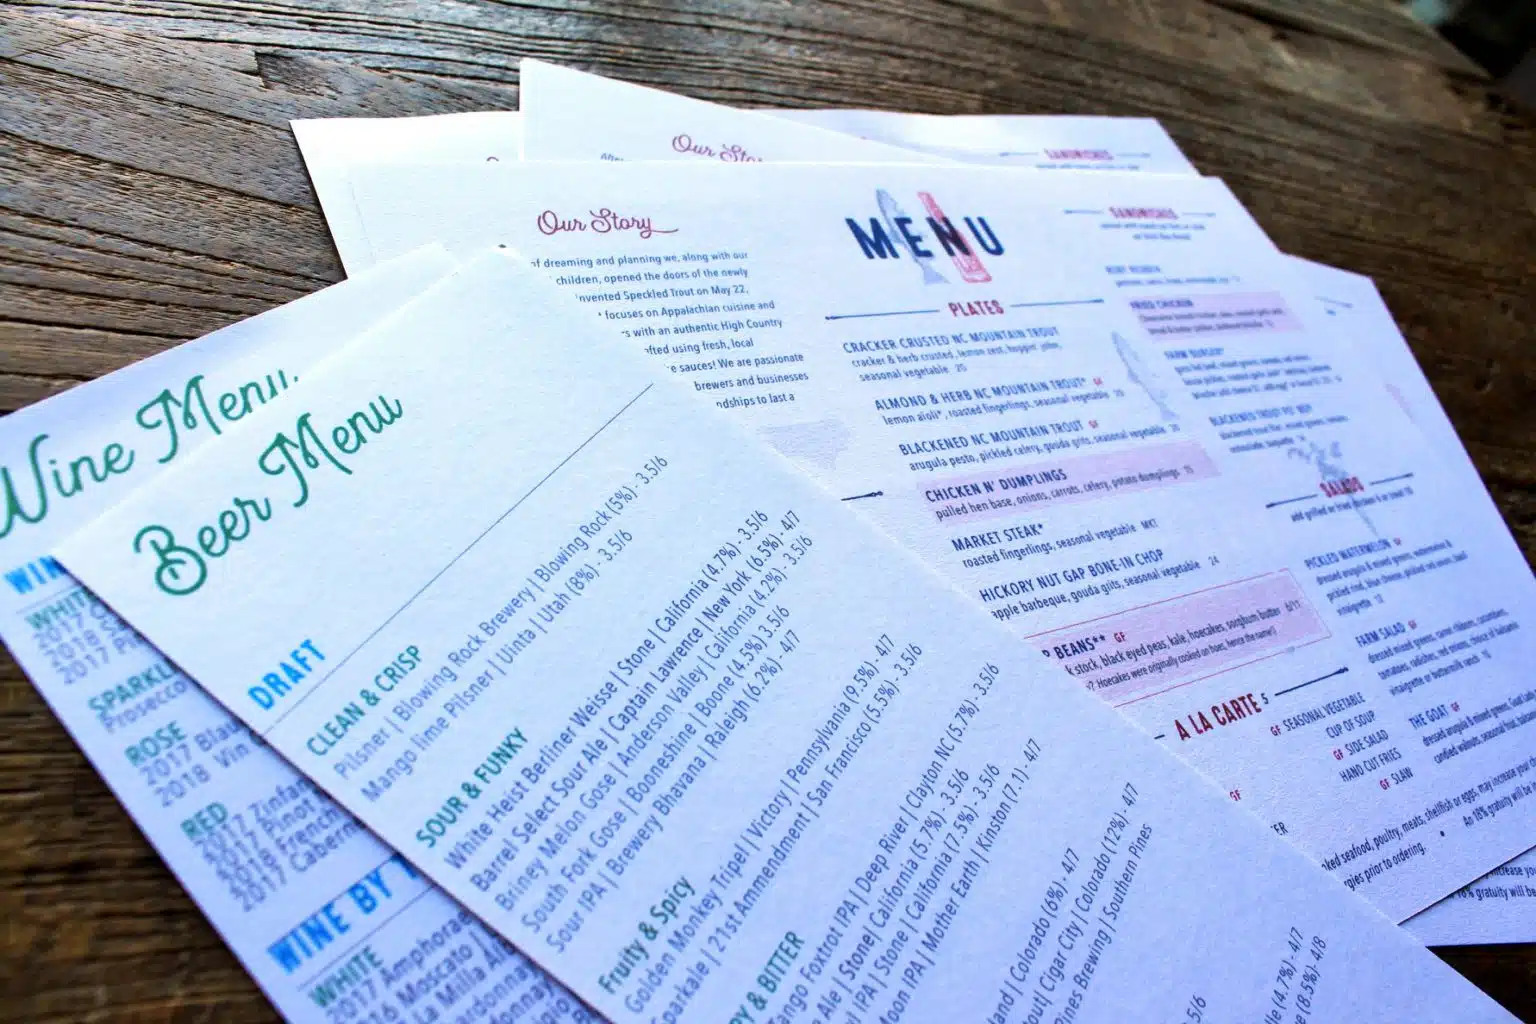 Wine Menu
WIN
WHIT
2017
2018
2017
SPARKL
Prosecco
ROSE
2017 Blau
2018 Vin
RED
2017 Zinfan
2017 Pinot
2018 French
2017 Caberne
WINE BY
WHITE
2017 Amphorae
2016 Moscato
La Milla Alb
Beer Menu
DRAFT
CLEAN & CRISP
Pilsner | Blowing Rock Brewery | Blowing Rock (5%) - 3.5/6
Mango lime Pilsner | Uinta | Utah (8%) - 3.5/6
SOUR & FUNKY
White Heist Berliner Weisse | Stone | California (4.7%) - 3.5/6
Barrel Select Sour Ale | Captain Lawrence | New York (6.5%) - 4/7
Briney Melon Gose | Anderson Valley | California (4.2%) - 3.5/6
South Fork Gose | Booneshine | Boone (4.5%) 3.5/6
Sour IPA | Brewery Bhavana | Raleigh (6.2%) - 4/7
Fruity & Spicy
Golden Monkey Tripel | Victory | Pennsylvania (9.5%) - 4/7
Sparkale | 21st Ammendment | San Francisco (5.5%) - 3.5/6
Y & BITTER
Tango Foxtrot IPA | Deep River | Clayton NC (5.7%) - 3.5/6
Ale | Stone| California (5.7%) - 3.5/6
IPA | Stone | California (7.5%) - 3.5/6
Moon IPA | Mother Earth | Kinston (7.1) - 4/7
land | Colorado (6%) - 4/7
tout| Cigar City | Colorado (12%) - 4/7
Pines Brewing | Southern Pines
/6
(4.7%) - 4/7
(8.5%) - 4/8
Our Story
Our Story
of dreaming and planning we, along with our
children, opened the doors of the newly
nvented Speckled Trout on May 22,
focuses on Appalachian cuisine and
s with an authentic High Country
afted using fresh, local
e sauces! We are passionate
brewers and businesses
ndships to last a
MENU
PLATES
CRACKER CRUSTED NC MOUNTAIN TROUT
cracker & herb crusted, lemon zest, hoppin' john,
seasonal vegetable 20
ALMOND & HERB NC MOUNTAIN TROUT* GF
lemon aioli*, roasted fingerlings, seasonal vegetable 20
BLACKENED NC MOUNTAIN TROUT GF
arugula pesto, pickled celery, gouda grits, seasonal vegetable 20
CHICKEN N' DUMPLINGS
pulled hen base, onions, carrots, celery, potato dumplings 15
MARKET STEAK*
roasted fingerlings, seasonal vegetable MKT
HICKORY NUT GAP BONE-IN CHOP
apple barbeque, gouda grits, seasonal vegetable 24
P BEANS** GF
k stock, black eyed peas, kale, hoecakes, sorghum butter 6/11
? Hoecakes were originally cooked on hoes, hence the name!)
A LA CARTE 5
GF SEASONAL VEGETABLE
CUP OF SOUP
GF SIDE SALAD
HAND CUT FRIES
GF SLAW
GF
ER
SANDWICHES
SANDWICHES
RUBY REUBEN
FRIED CHICKEN
FARM BURGER*
BLACKENED TROUT PO' BOY
SALADS
add grilled or fried chicken 6 or trout 10
PICKLED WATERMELON GF
dressed arugula & mixed greens, watermelon &
pickled rind, blue cheese, pickled red onion, basil
vinaigrette 12
FARM SALAD GF
dressed mixed greens, carrot ribbons, cucumbers,
tomatoes, radishes, red onions, choice of balsamic
vinaigrette or buttermilk ranch 10
THE GOAT GF
dressed arugula & mixed greens, Goat
candied walnuts, seasonal fruit,
ked seafood, poultry, meats, shellfish or eggs, may increase your
rgies prior to ordering. • An 18% gratuity will be
increase you
18% gratuity will be